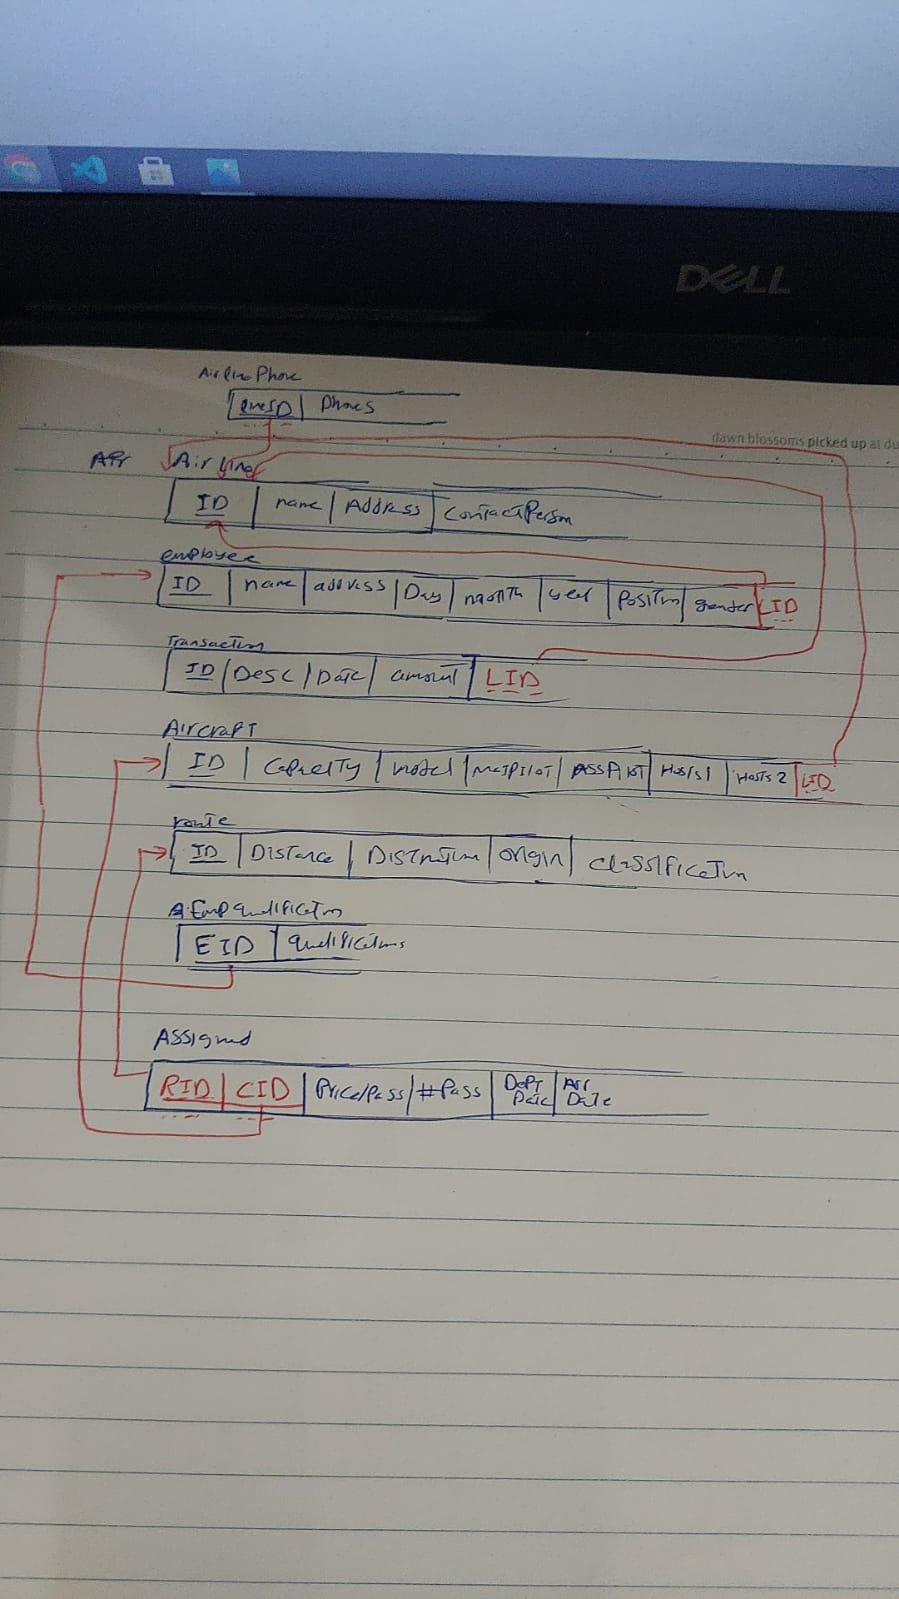 DELL
AirlinePhone
phones
dawn blossoms picked up at du
Air Airline
ID name Address ContactPerson
employee
ID name address Day month year Position gender LID
Transaction
ID Desc Date amount LID
Aircraft
ID Capacity model
Hosts1 Hosts2 LID
route
ID Distance origin classification
EmpQualification
EID Qualifications
Assigned
RID CID Price/Pass #Pass Dept Date Arr Date